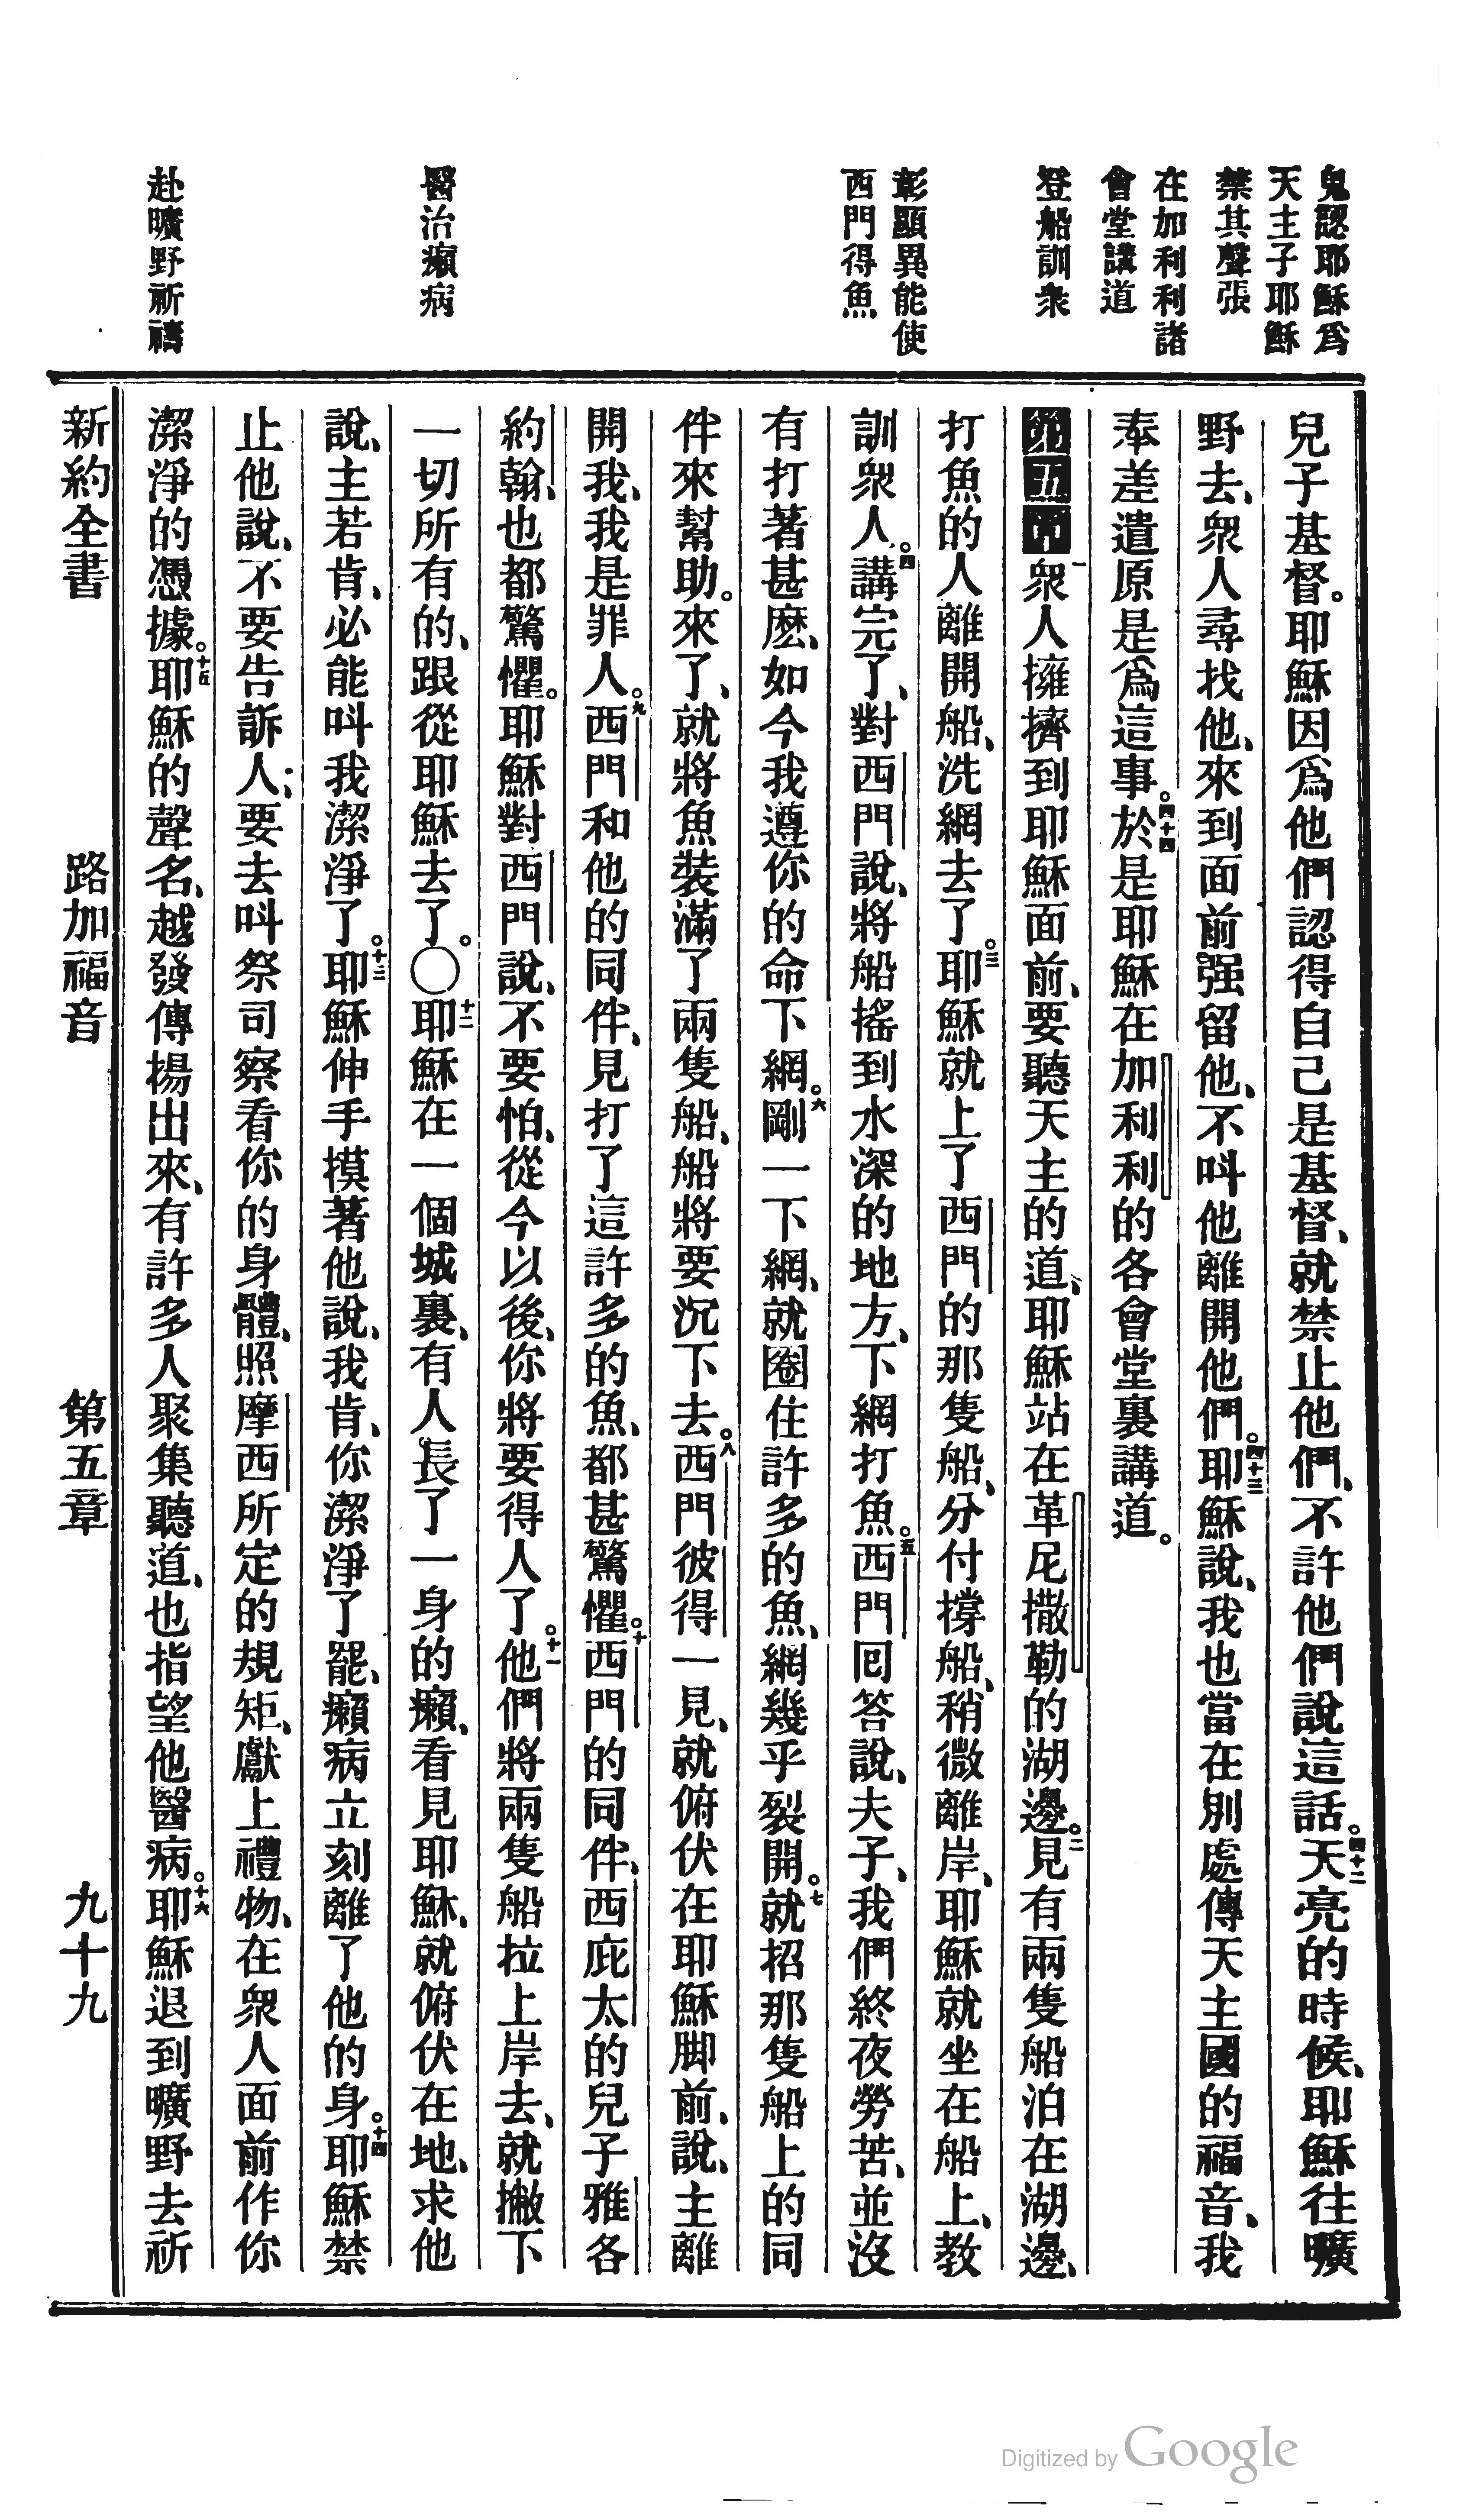 鬼認耶穌爲
天主子耶穌
禁其聲張
在加利利諸
會堂講道
登船訓衆
彰顯異能使
西門得魚
醫治癩病
赴曠野祈禱
兒子基督。耶穌因爲他們認得自己是基督、就禁止他們、不許他們說這話。四十二天亮的時候、耶穌往曠
野去、衆人尋找他、來到面前强留他、不呌他離開他們。四十三耶穌說、我也當在別處傳天主國的福音、我
奉差遣原是爲這事。四十四於是耶穌在加利利的各會堂裏講道。
第五章一衆人擁擠到耶穌面前、要聽天主的道、耶穌站在革尼撒勒的湖邊。二見有兩隻船泊在湖邊、
打魚的人離開船、洗網去了。三耶穌就上了西門的那隻船、分付撐船、稍微離岸、耶穌就坐在船上、教
訓衆人。四講完了、對西門說、將船搖到水深的地方、下網打魚。五西門回答說、夫子、我們終夜勞苦、並沒
有打著甚麽、如今我遵你的命下網。六剛一下網、就圈住許多的魚、網幾乎裂開。七就招那隻船上的同
伴來幫助。來了、就將魚裝滿了兩隻船、船將要沉下去。八西門彼得一見、就俯伏在耶穌脚前、說、主離
開我、我是罪人。九西門和他的同伴、見打了這許多的魚、都甚驚懼。十西門的同伴、西庇太的兒子雅各
約翰、也都驚懼。耶穌對西門說、不要怕、從今以後、你將要得人了。十一他們將兩隻船拉上岸去、就撇下
一切所有的、跟從耶穌去了。〇十二耶穌在一個城裏、有人長了一身的癩、看見耶穌、就俯伏在地、求他
說、主若肯、必能呌我潔淨了。十三耶穌伸手摸著他說、我肯、你潔淨了罷、癩病立刻離了他的身。十四耶穌禁
止他說、不要告訴人;要去呌祭司察看你的身體、照摩西所定的規矩、獻上禮物、在衆人面前作你
潔淨的憑據。十五耶穌的聲名、越發傳揚出來、有許多人聚集聽道、也指望他醫病。十六耶穌退到曠野去祈
新約全書 路加福音 第五章 九十九
Digitized by Google